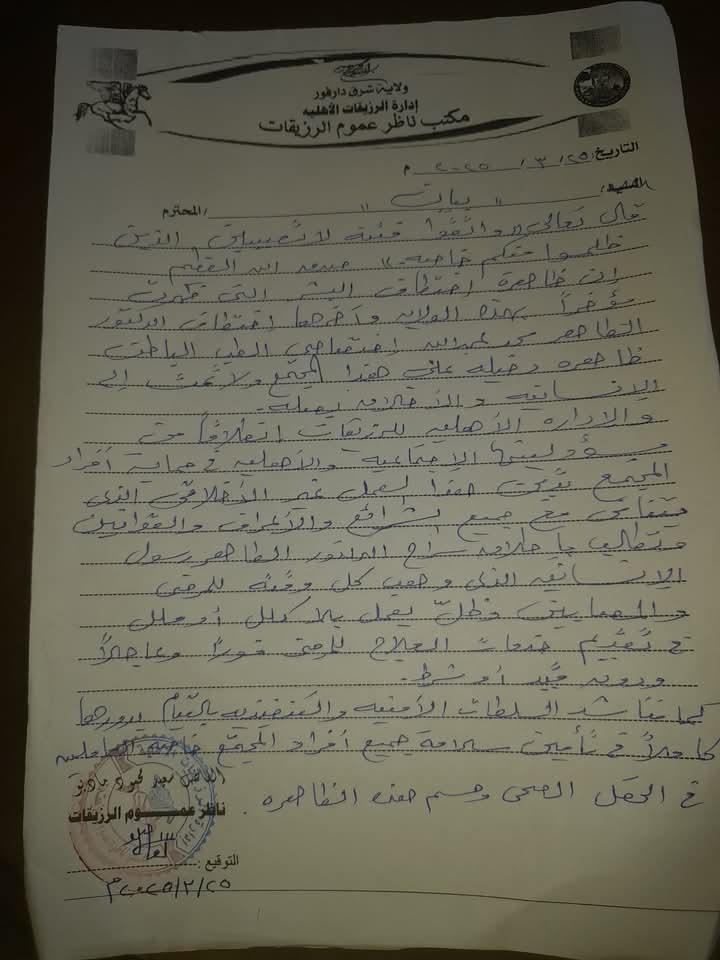 ولاية شرق دارفور
إدارة الرزيقات الأهلية
مكتب ناظر عموم الرزيقات
التاريخ: ٢٥ / ٣ / ٢٠٢٥ م
السيد/ " بيان " /المحترم
قال تعالى " واتقوا فتنة لا تصيبن الذين
ظلموا منكم خاصة " صدق الله العظيم
إن ظاهرة اختطاف البشر التي ظهرت
مؤخراً بهذه الولاية وآخرها اختطاف الدكتور
الطاهر محمد عبدالله اختصاصي الطب الباطني
ظاهره دخيله على هذا المجتمع ولا تمت إلى
الإنسانية والأخلاق بصلة.
والإداره الأهلية للرزيقات انطلاقاً من
مسؤوليتها الإجتماعية والأهلية في حماية أفراد
المجتمع تدين هذا العمل غير الأخلاقي الذى
يتنافى مع جميع الشرائع والأعراف والقوانين
وتطالب بإطلاق سراح الدكتور الطاهر رسول
الإنسانية الذى وهب كل وقته للمرضى
والمصابين وظل يعمل بلا كلل أو ملل
في تقديم خدمات العلاج للمرضى فوراً وعاجلاً
وبدون قيد أو شرط.
كما تناشد السلطات الأمنية والتنفيذيه بالقيام بدورها
كاملاً في تأمين سلامة جميع أفراد المجتمع خاصة العاملين
في الحقل الصحى وحسم هذه الظاهره.
الفاضل سعيد محمود مادبو
ناظر عموم الرزيقات
التوقيع:
٢٠٢٥/٣/٢٥م